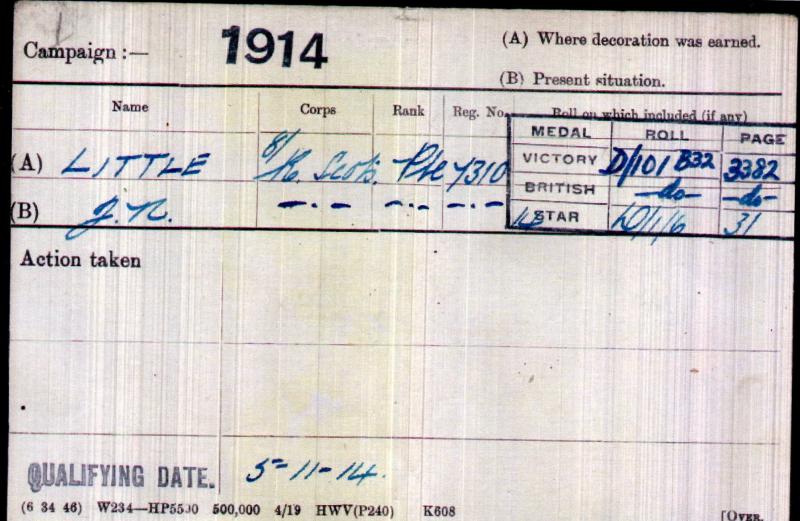 Campaign :— 1914 (A) Where decoration was earned.
(B) Present situation.
Name Corps Rank Reg. No. Roll on which included (if any)
MEDAL ROLL PAGE
(A) LITTLE 8/R. Scots. Pte 7310 VICTORY D/101 B32 3382
BRITISH -do- -do-
(B) J.N. —·— —·— —·— 14 STAR D/1/6 31
Action taken
QUALIFYING DATE. 5-11-14.
(6 34 46) W234—HP5500 500,000 4/19 HWV(P240) K608 [OVER.